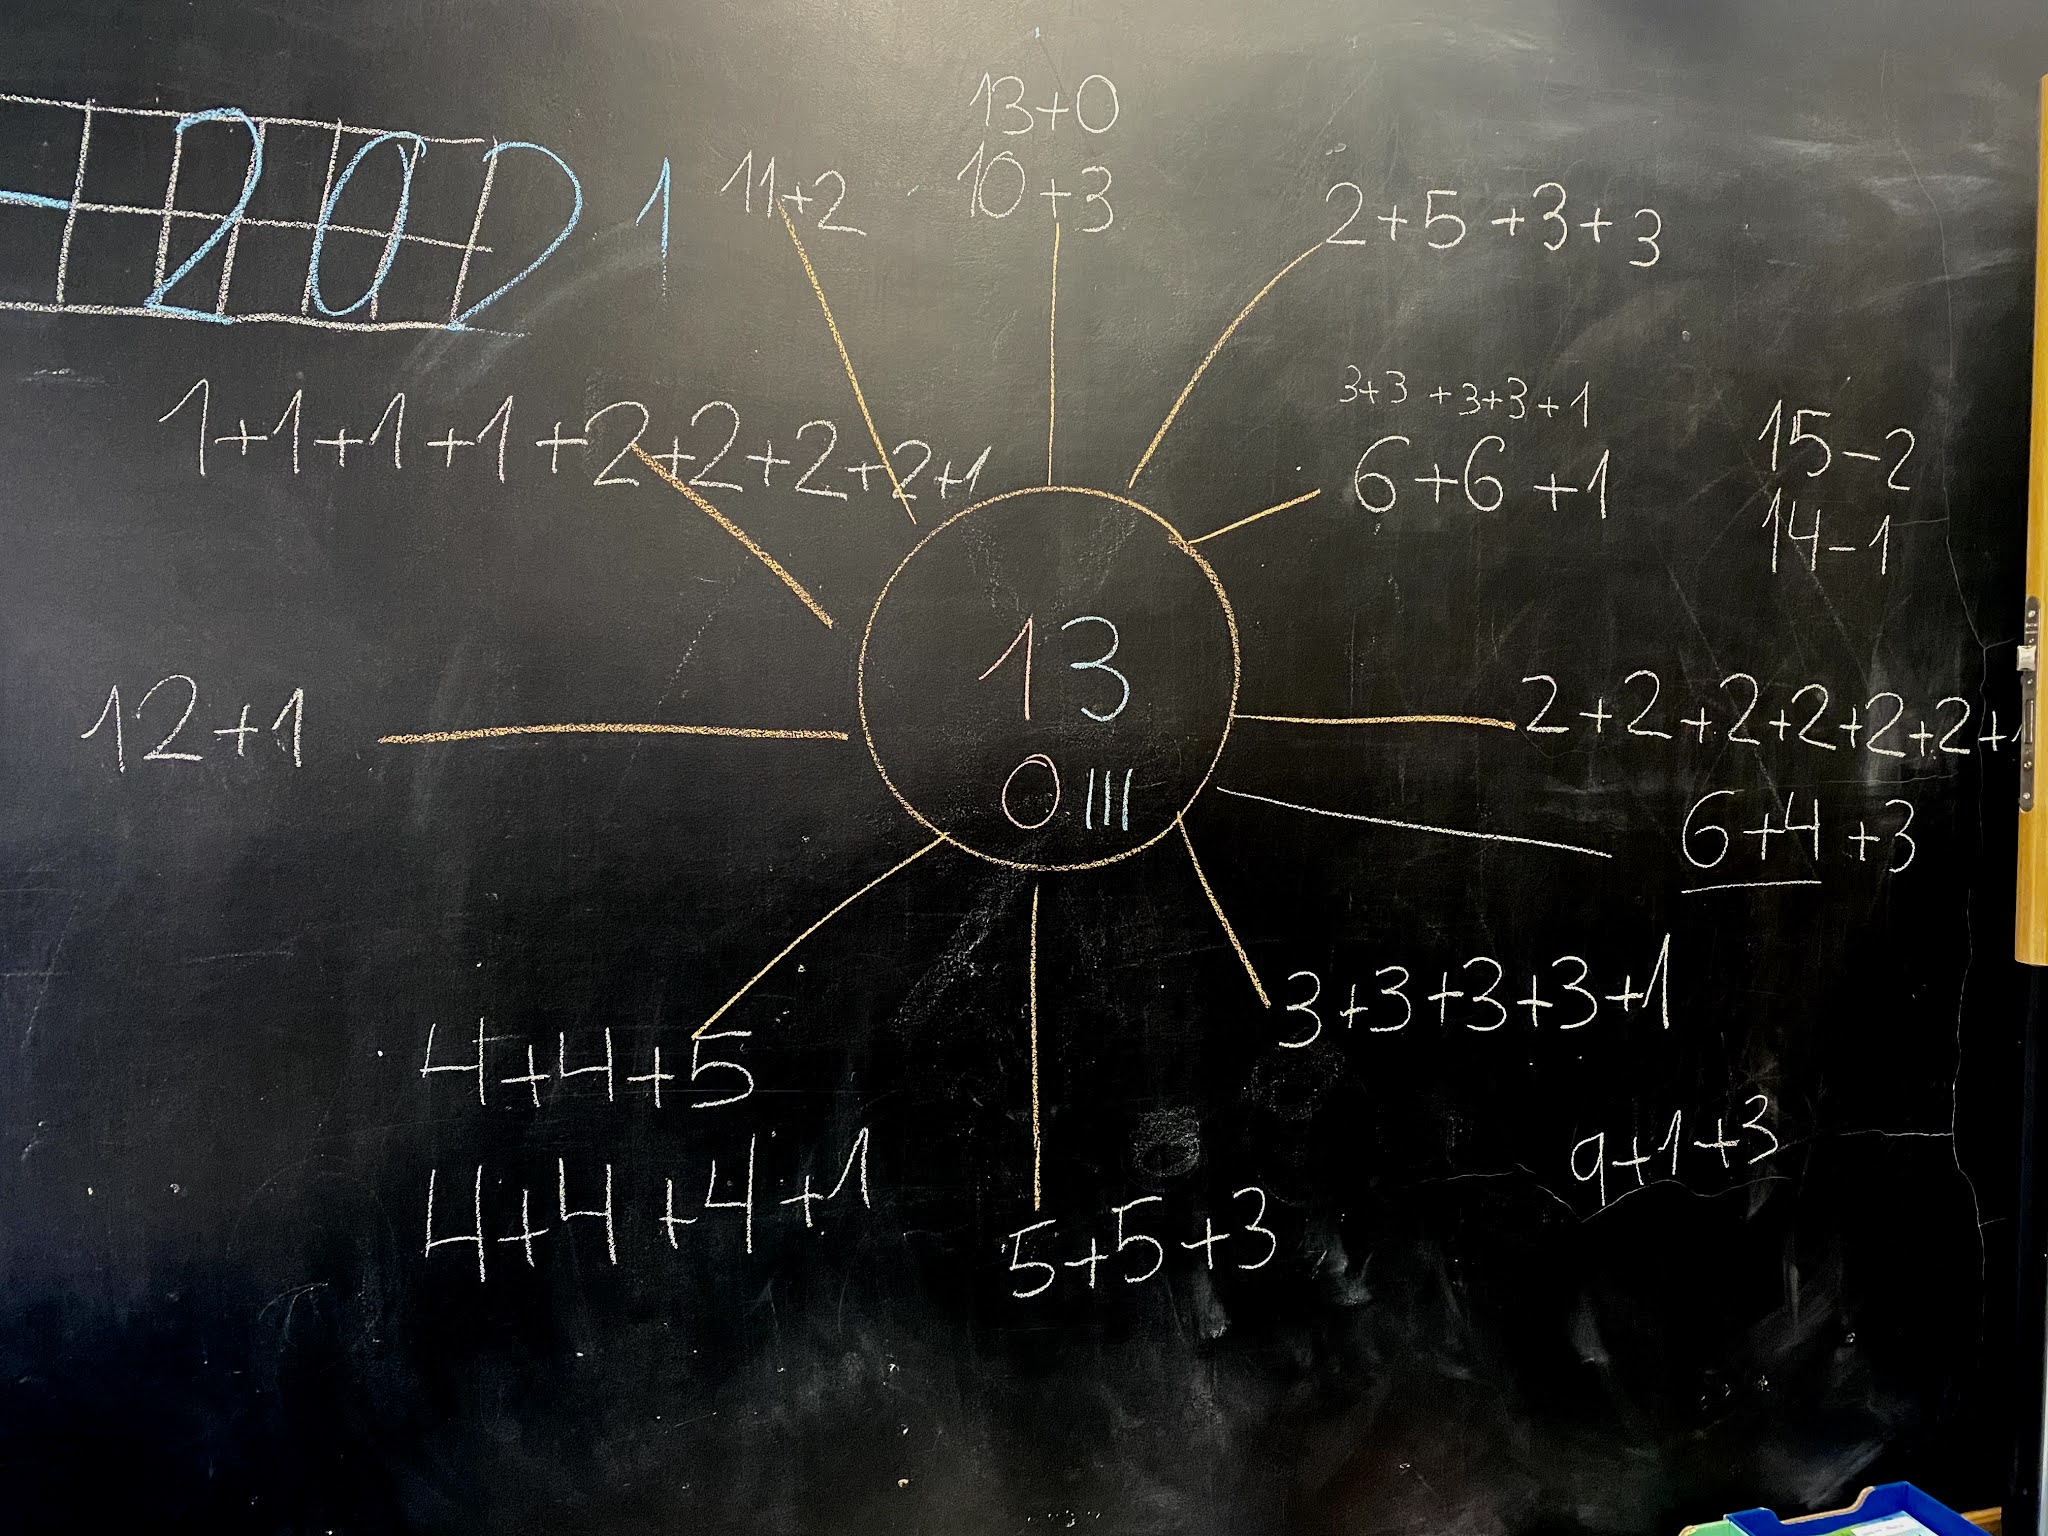 13+0
10+3
11+2
2+5+3+3
- 20
1
3+3+3+3+1
6+6+1
15-2
14-1
1+1+1+1+2+2+2+2+1
13
0 III
12+1
2+2+2+2+2+2+1
6+4+3
3+3+3+3+1
4+4+5
4+4+4+1
9+1+3
5+5+3